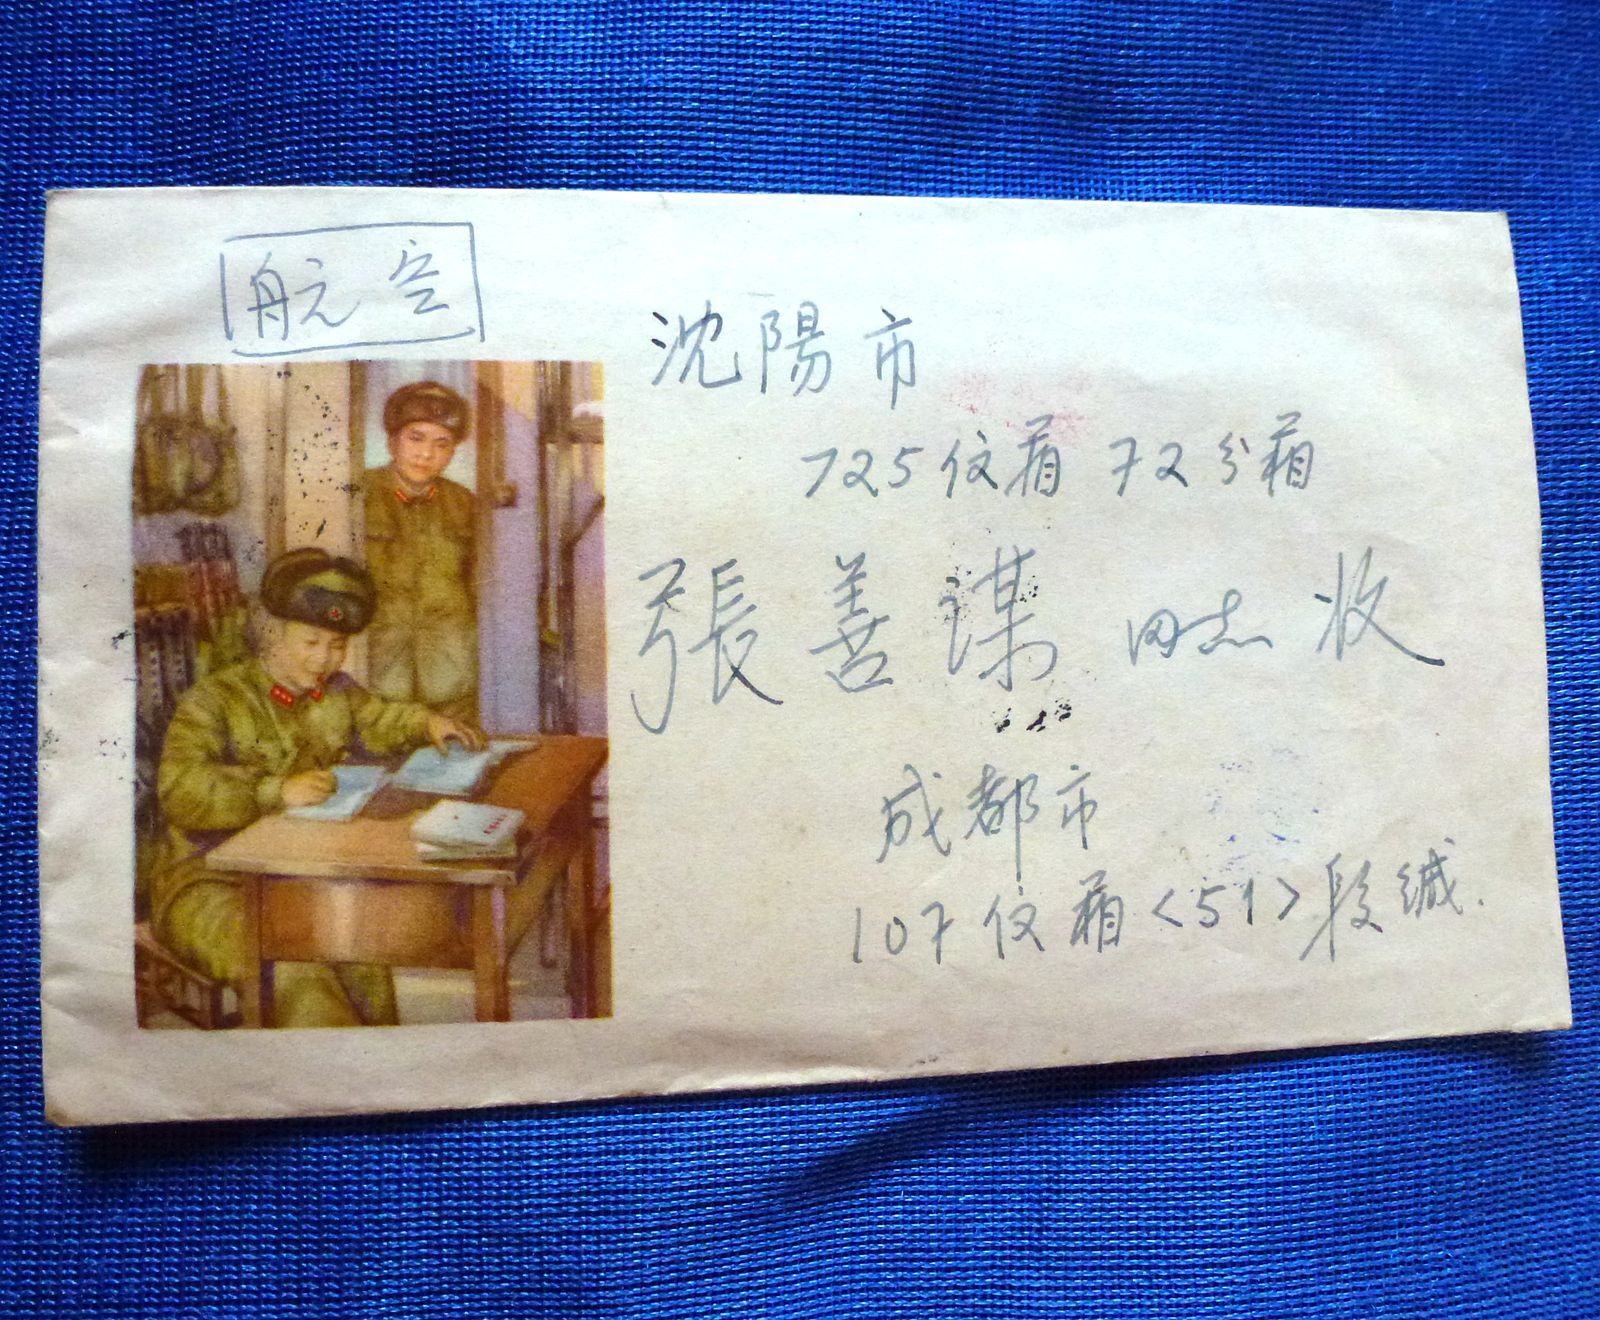 航空
沈陽市
725信箱 72分箱
張善謀 同志 收
成都市
107信箱<51>段缄.